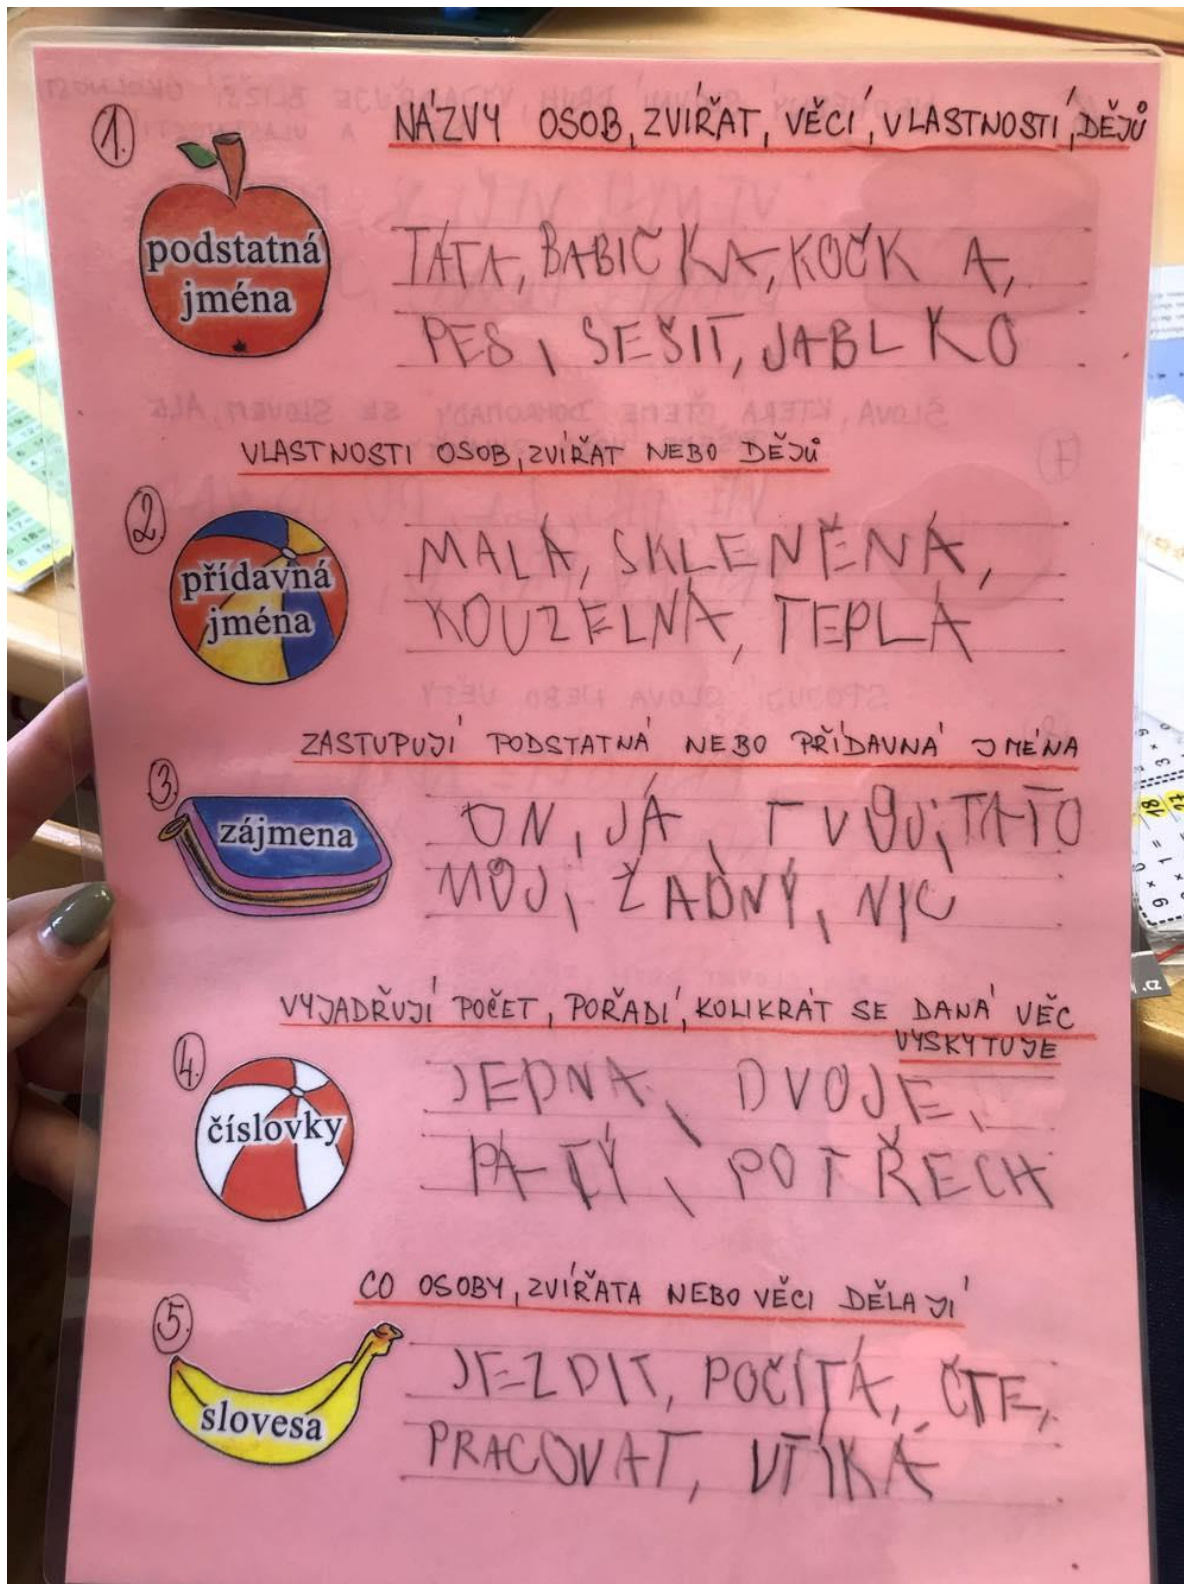 1. NÁZVY OSOB, ZVÍŘAT, VĚCÍ, VLASTNOSTÍ, DĚJŮ
podstatná
jména
TÁTA, BABIČKA, KOČKA,
PES, SEŠIT, JABLKO
VLASTNOSTI OSOB, ZVÍŘAT NEBO DĚJŮ
2.
přídavná
jména
MALÁ, SKLENĚNÁ,
KOUZELNÁ, TEPLÁ
ZASTUPUJÍ PODSTATNÁ NEBO PŘÍDAVNÁ JMÉNA
3.
zájmena
ON, JÁ, TVŮJ, TATO
MŮJ, ŽÁDNÝ, NIC
VYJADŘUJÍ POČET, POŘADÍ, KOLIKRÁT SE DANÁ VĚC
VYSKYTUJE
4.
číslovky
JEDNA, DVOJE,
PÁTÝ, POTŘECH
CO OSOBY, ZVÍŘATA NEBO VĚCI DĚLAJÍ
5.
slovesa
JEZDIT, POČÍTÁ, ČTE,
PRACOVAT, UTÍKÁ